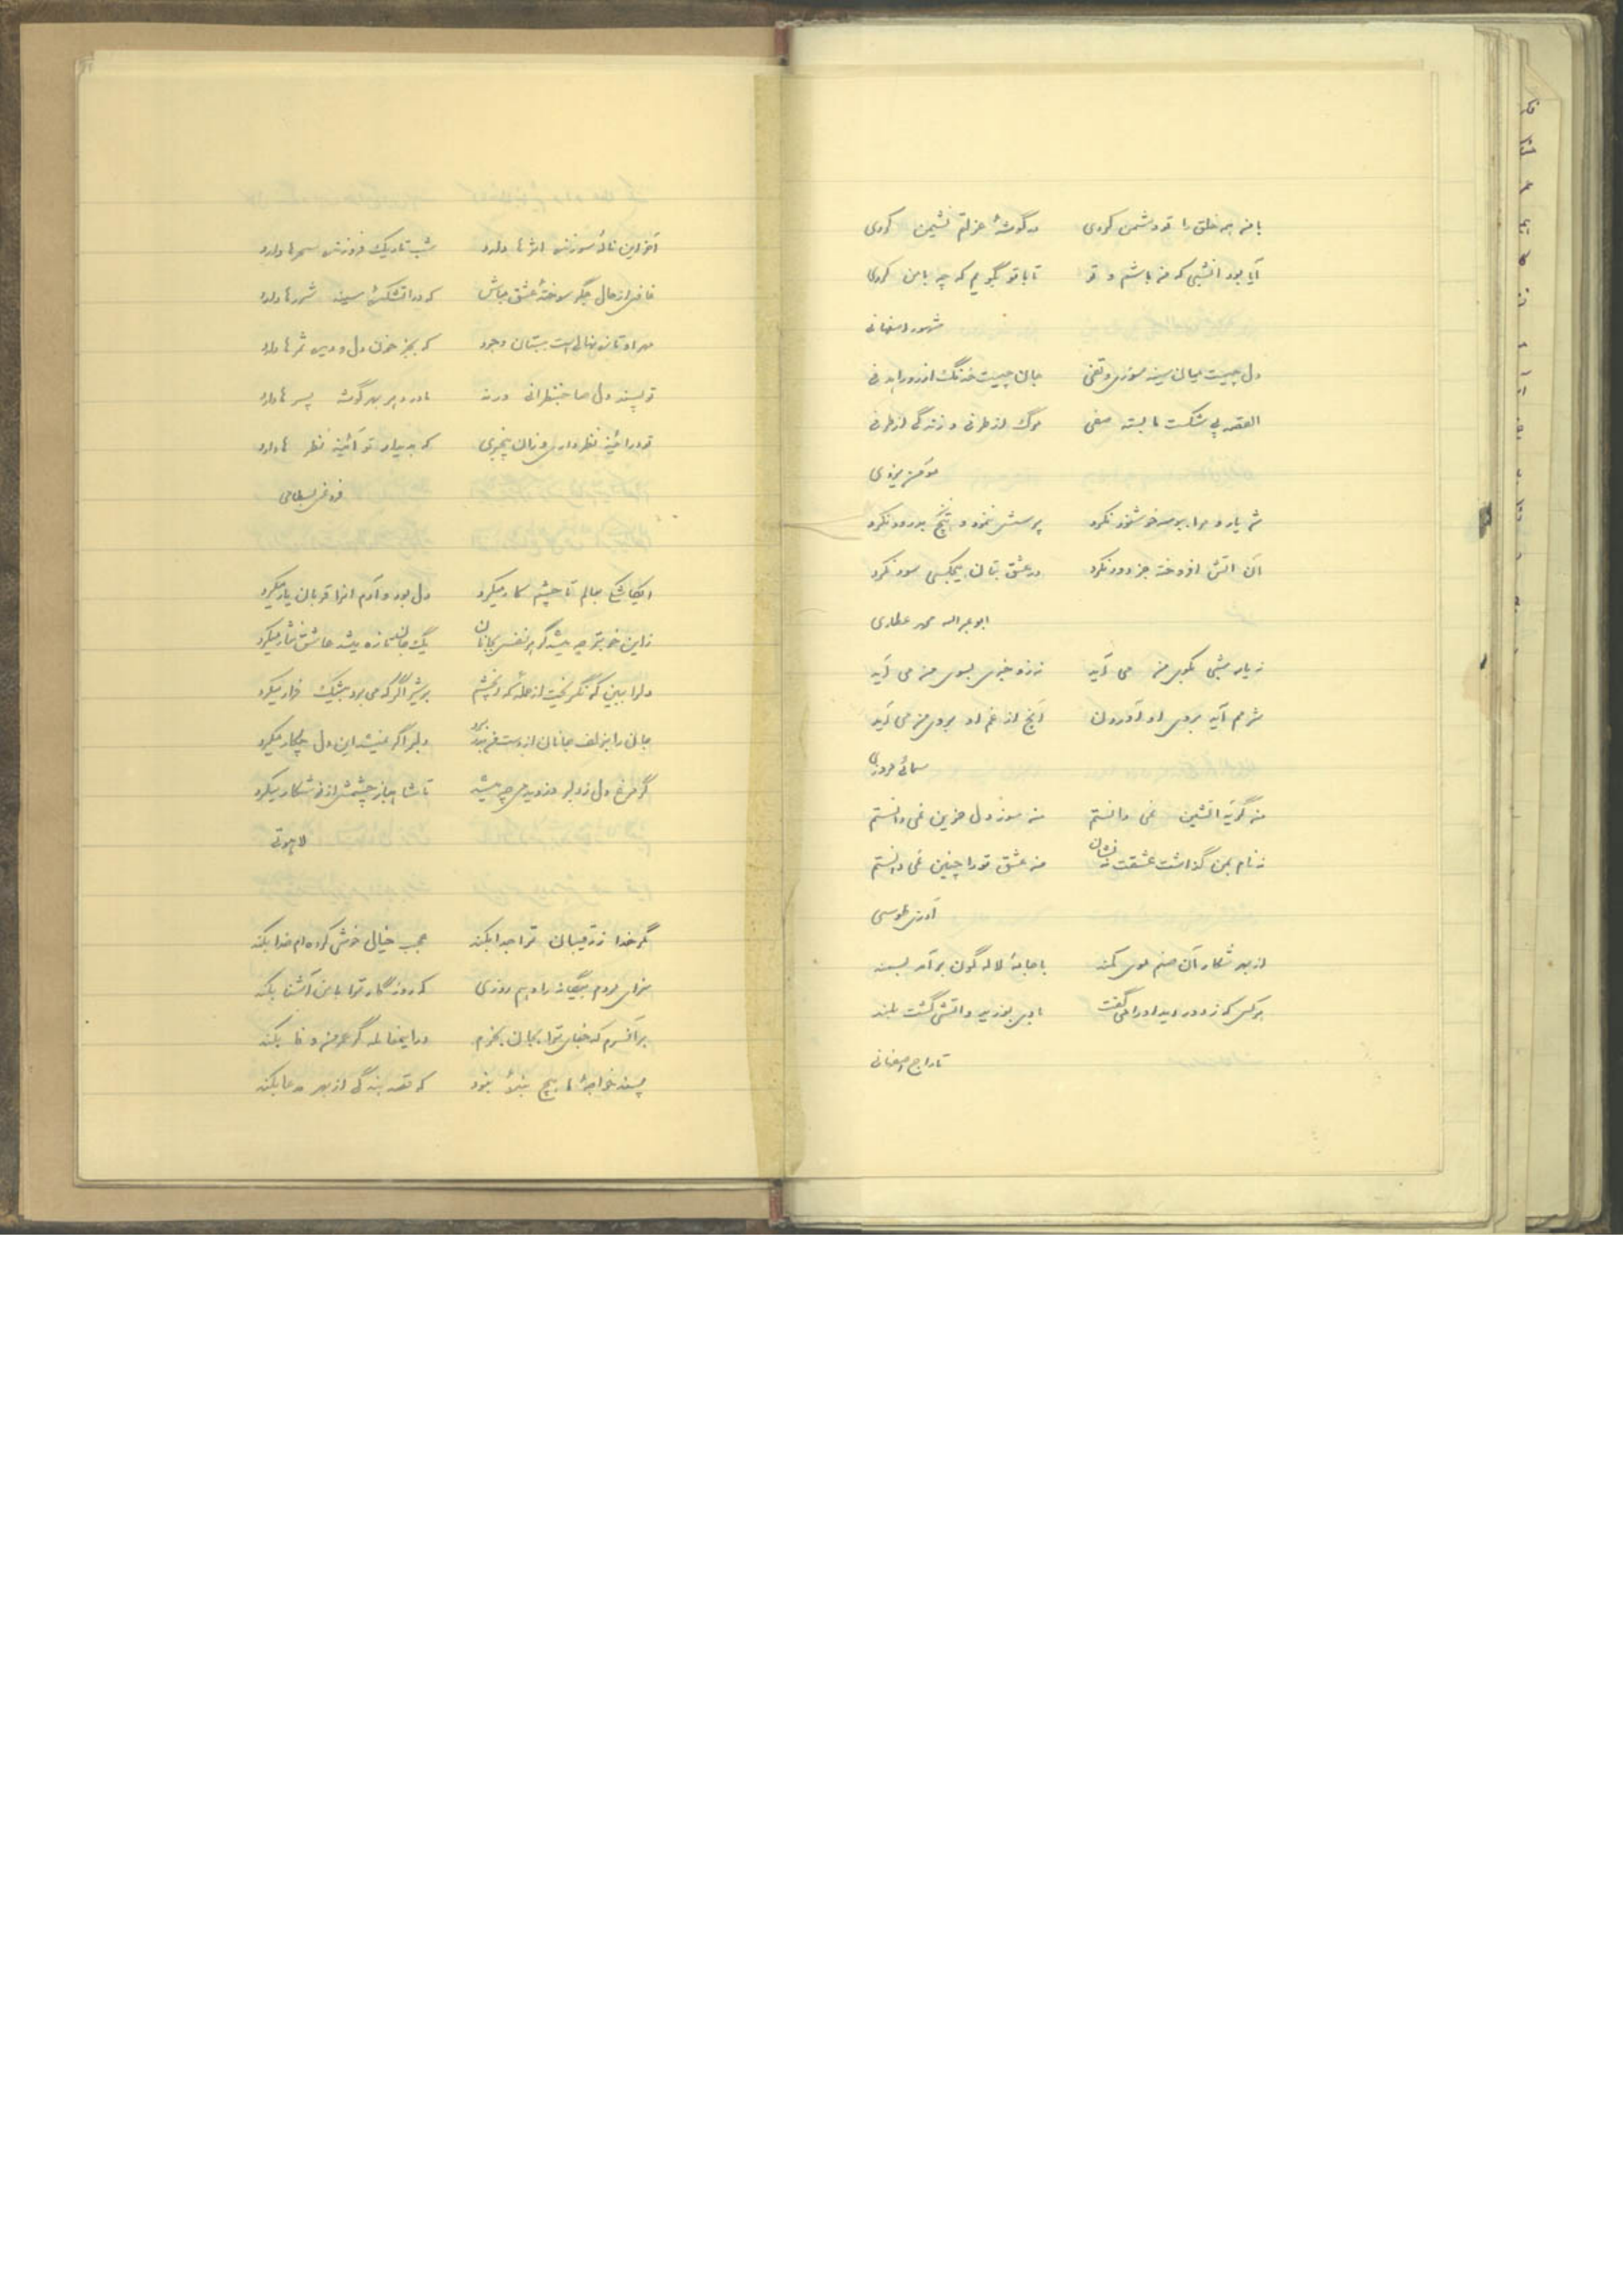 با من همه خلق را تو دشمن کردی در گوشهٔ عزلتم نشیمن کردی
آیا بود آنشبی که من باشم و تو تا با تو بگویم که چه با من کردی
اصفهانی
دل چیست میان سینه سوزی و تفی جان چیست خدنگ
القصه پی شکست ما بسته صفی مرگ از طرفی و زندگی از طرفی
مؤمن یزدی
پرسش ننمود و هیچ بدرود نکرد
آن آتش افروخته جز دود نکرد در عشق بتان هیچکسی سود نکرد
ابوعبداله محمد عطاری
نه یار شبی بکوی من می آید نه زو خبری بسوی من می آید
شرمم آید بروی او آوردن آنچ از غم او بروی من می آید
سمائی مروزی
من گریهٔ آتشین نمی دانستم من سوز دل حزین نمی دانستم
نه نام بمن گذاشت عشقت نه نشان من عشق تو را چنین نمی دانستم
آذری طوسی
از بهر شکار آن صنم کمند با جامهٔ لاله گون برآمد بسمند
هر کس که ز دور دید او را می گفت بادی بوزید و آتشی گشت بلند
تاراج اصفهانی
آخر این نالهٔ سوزنده اثرها دارد شب تاریک فروزنده سحرها دارد
غافل از حال جگر سوختهٔ عشق مباش که در آتشکدهٔ سینه شررها دارد
مهر او تازه نهالی است ببستان وجود که بجز خون دل و دیده ثمرها دارد
تو پسند دل صاحبنظرانی ورنه مادر دهر بهر گوشه پسرها دارد
تو در آئینه نظر داری و زان بیخبری که به دیدار تو آئینه نظرها دارد
فروغی بسطامی
دل بود و آدم آنرا قربان یار میکرد
زاین خوبتر چه میشد گر هر نفس بجانان یک جان تازه میشد عاشق نثار میکرد
دلرا ببین که نگریخت از حملهٔ که آنچشم بر شیر اگر که می برد بیشک فرار میکرد
جان را بزلف جانان از دست من بدر برد دلبر اگر نمیشد این دل چکار میکرد
گر مرغ دل ز دلبر دزدیدمی چه میشد تا شاهباز چشمش از نو شکار میکرد
لاهوتی
گر خدا ز رقیبان ترا جدا بکند عجب خیال خوشی کرده ام خدا بکند
سزای مردم بیگانه را دهم روزی که روزگار ترا با من آشنا بکند
بر آنسرم که جفای ترا بجان بخرم در اینمعامله گر عمر من وفا بکند
پسند خواجهٔ ما هیچ بندهٔ نبود که قصد بندگی از بهر مدعا بکند